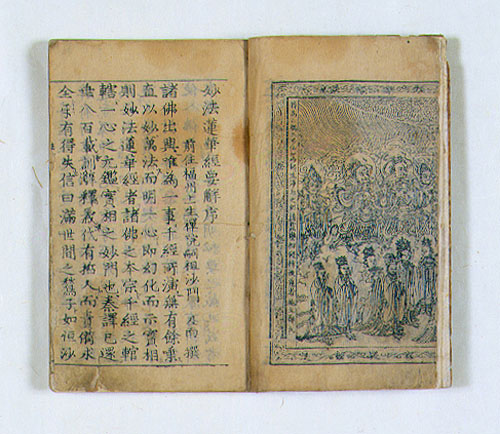 妙法蓮華經要解序
前住福州上生禪院嗣祖沙門 及南撰
諸佛出興唯為一事千經所演蔑有餘乘
直以妙萬法而明一心即幻化而示實相
則妙法蓮華經者諸佛之本宗千經之輨
轄一心之元鑑實相之妙門也秦譯已還
百載訓釋義代有哲人而求
全有得失信曰滿世間之鶖子如恒沙